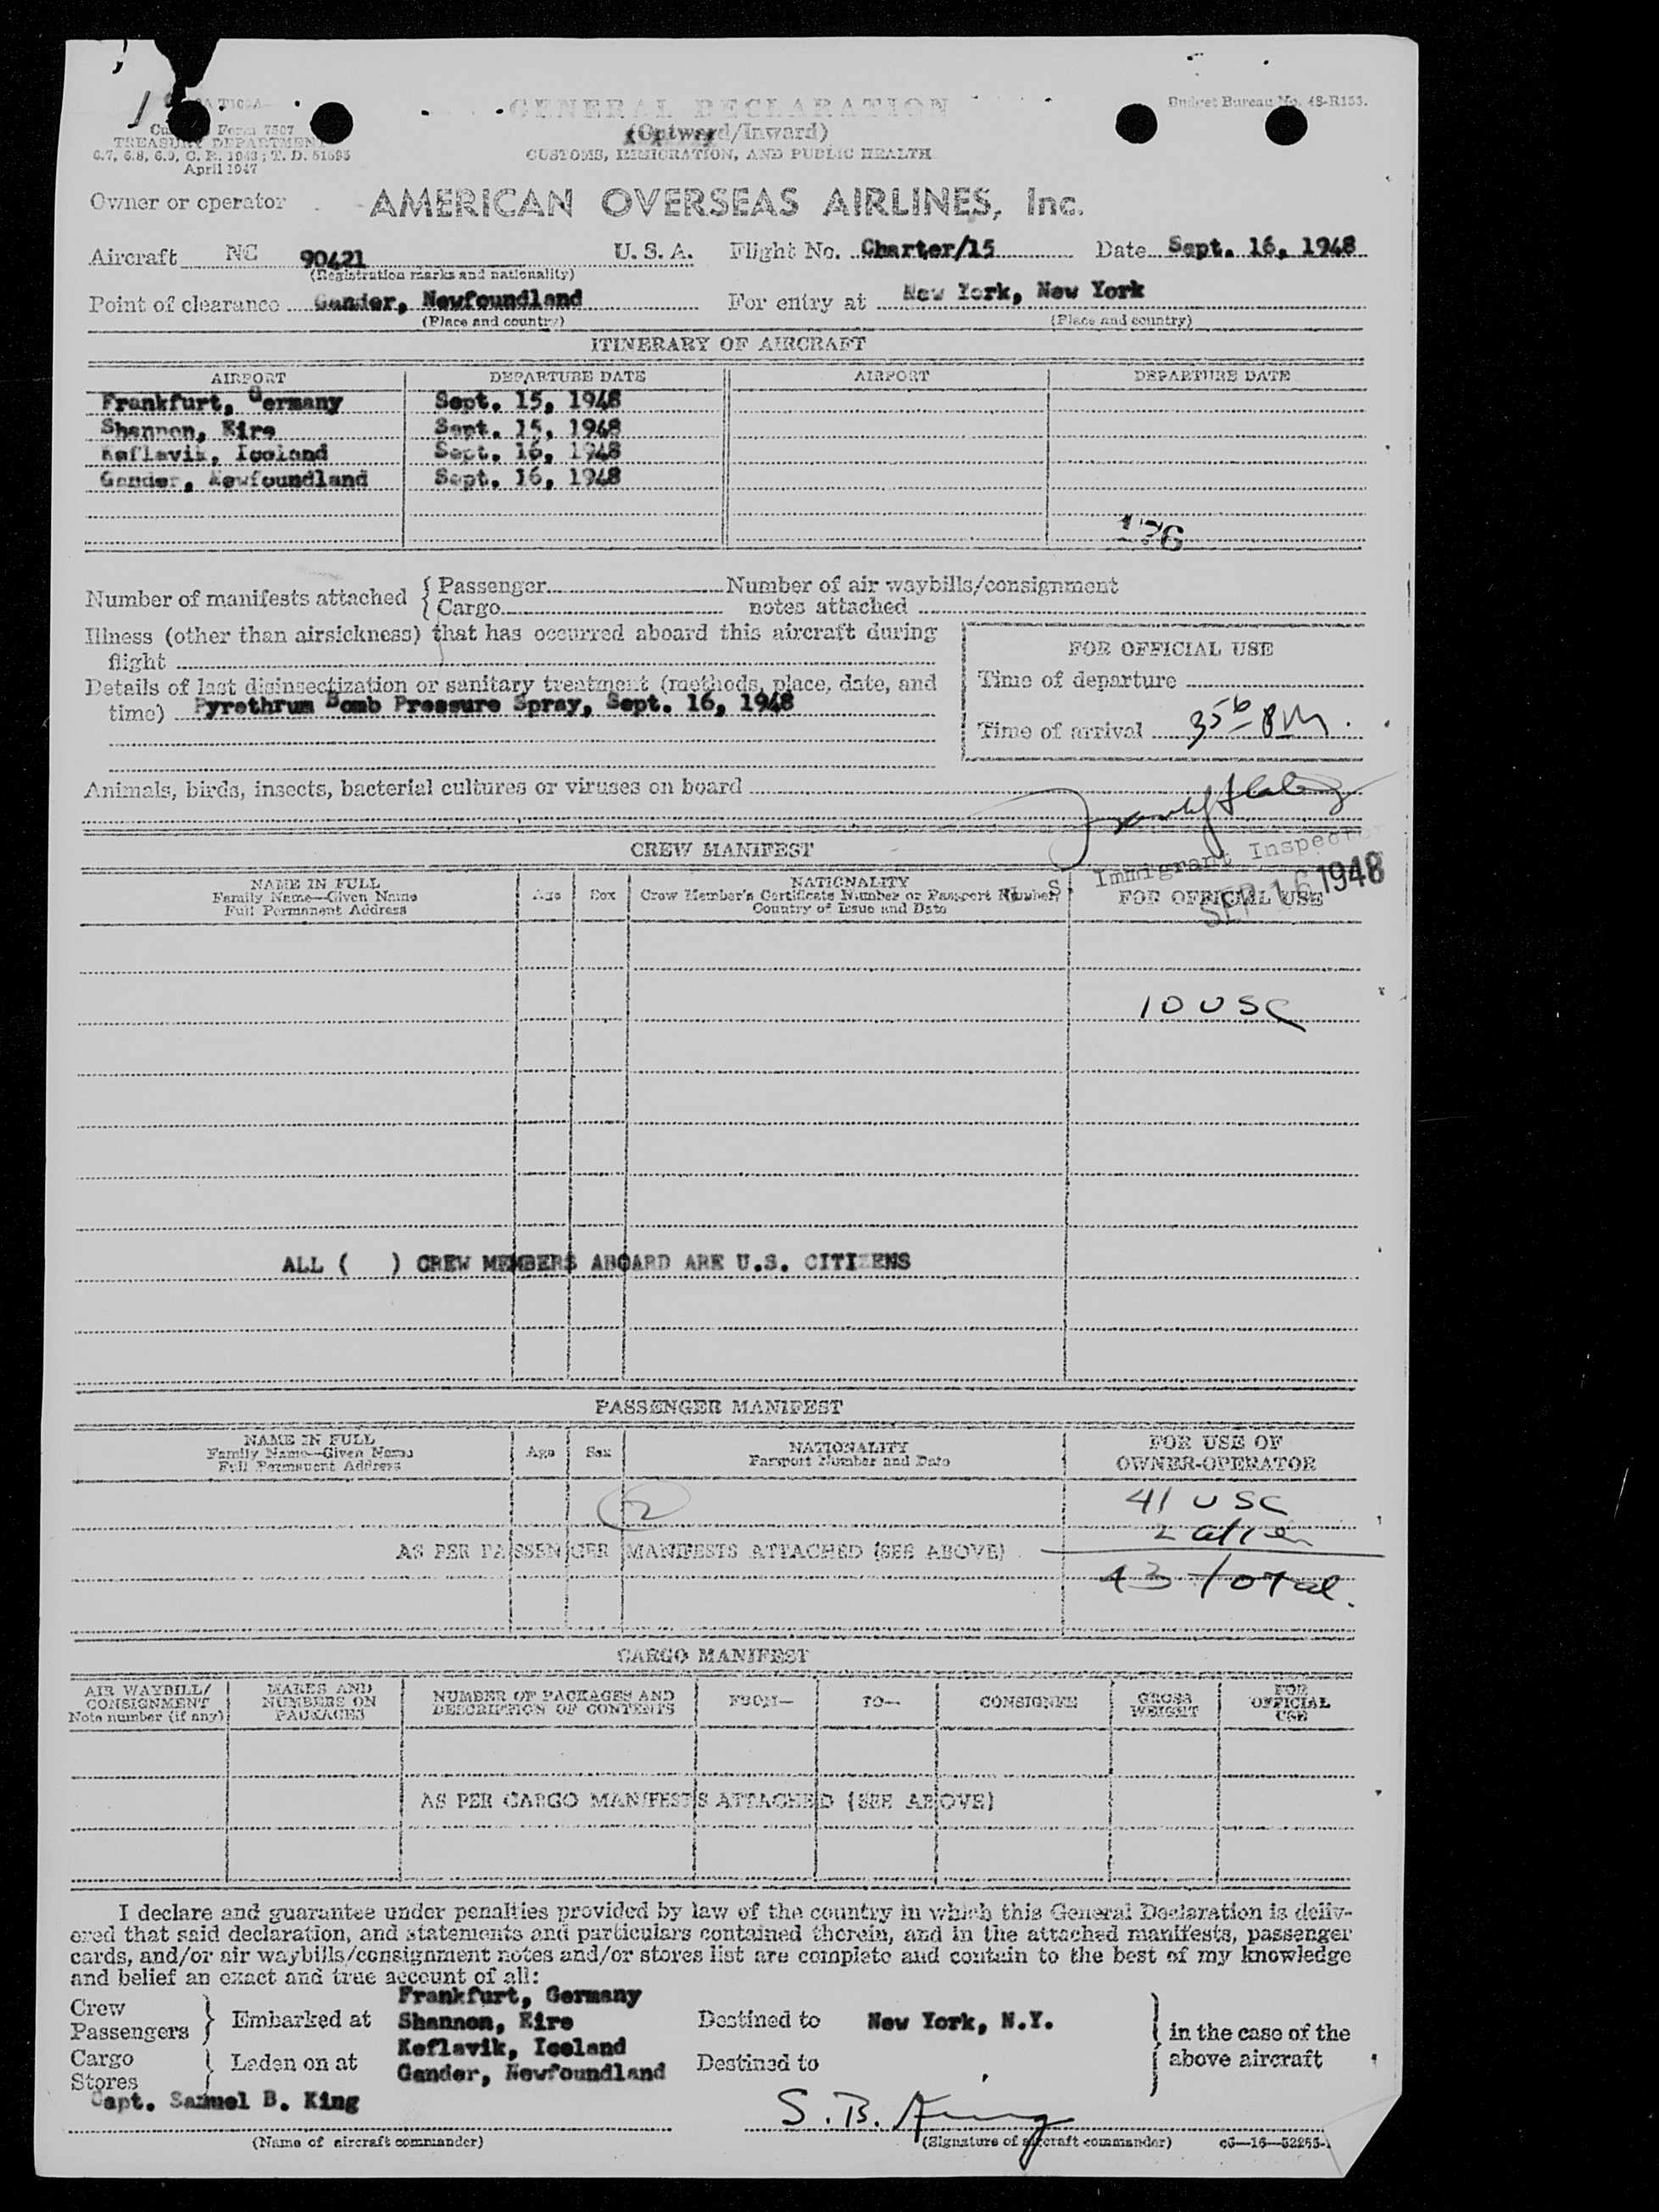 GENERAL DECLARATION
Budget Bureau No. 48-R153.
Form 7507
(Outward/Inward)
TREASURY DEPARTMENT
CUSTOMS, IMMIGRATION, AND PUBLIC HEALTH
6.7, 6.8, 6.9, C. R. 1943; T. D. 51595
April 1947
Owner or operator AMERICAN OVERSEAS AIRLINES, Inc.
Aircraft NC 90421 U. S. A. Flight No. Charter/15 Date Sept. 16, 1948
(Registration marks and nationality)
Point of clearance Gander, Newfoundland For entry at New York, New York
(Place and country) (Place and country)
ITINERARY OF AIRCRAFT
AIRPORT DEPARTURE DATE AIRPORT DEPARTURE DATE
Frankfurt, Germany Sept. 15, 1948
Shannon, Eire Sept. 15, 1948
Keflavik, Iceland Sept. 16, 1948
Gander, Newfoundland Sept. 16, 1948
Number of manifests attached { Passenger Number of air waybills/consignment
{ Cargo notes attached
Illness (other than airsickness) that has occurred aboard this aircraft during
flight
FOR OFFICIAL USE
Details of last disinsectization or sanitary treatment (methods, place, date, and
time) Pyrethrum Bomb Pressure Spray, Sept. 16, 1948
Time of departure
Time of arrival 3 56 PM.
Animals, birds, insects, bacterial cultures or viruses on board
CREW MANIFEST
Immigrant Inspector
SEP 16 1948
NAME IN FULL Age Sex NATIONALITY FOR OFFICIAL USE
Family Name—Given Name Crew Member's Certificate Number or Passport Number,
Full Permanent Address Country of Issue and Date
10 USC
ALL ( ) CREW MEMBERS ABOARD ARE U.S. CITIZENS
PASSENGER MANIFEST
NAME IN FULL Age Sex NATIONALITY FOR USE OF
Family Name—Given Name Passport Number and Date OWNER-OPERATOR
Full Permanent Address
2 41 USC
2 alien
AS PER PASSENGER MANIFESTS ATTACHED (SEE ABOVE)
43 total.
CARGO MANIFEST
AIR WAYBILL/ MARKS AND NUMBER OF PACKAGES AND FROM— TO— CONSIGNEE GROSS FOR
CONSIGNMENT NUMBERS ON DESCRIPTION OF CONTENTS WEIGHT OFFICIAL
Note number (if any) PACKAGES USE
AS PER CARGO MANIFESTS ATTACHED (SEE ABOVE)
I declare and guarantee under penalties provided by law of the country in which this General Declaration is deliv-
ered that said declaration, and statements and particulars contained therein, and in the attached manifests, passenger
cards, and/or air waybills/consignment notes and/or stores list are complete and contain to the best of my knowledge
and belief an exact and true account of all:
Frankfurt, Germany
Crew
Passengers } Embarked at Shannon, Eire Destined to New York, N.Y. in the case of the
Keflavik, Iceland
Cargo
Stores } Laden on at Gander, Newfoundland Destined to above aircraft
Capt. Samuel B. King S. B. King
(Name of aircraft commander) (Signature of aircraft commander)